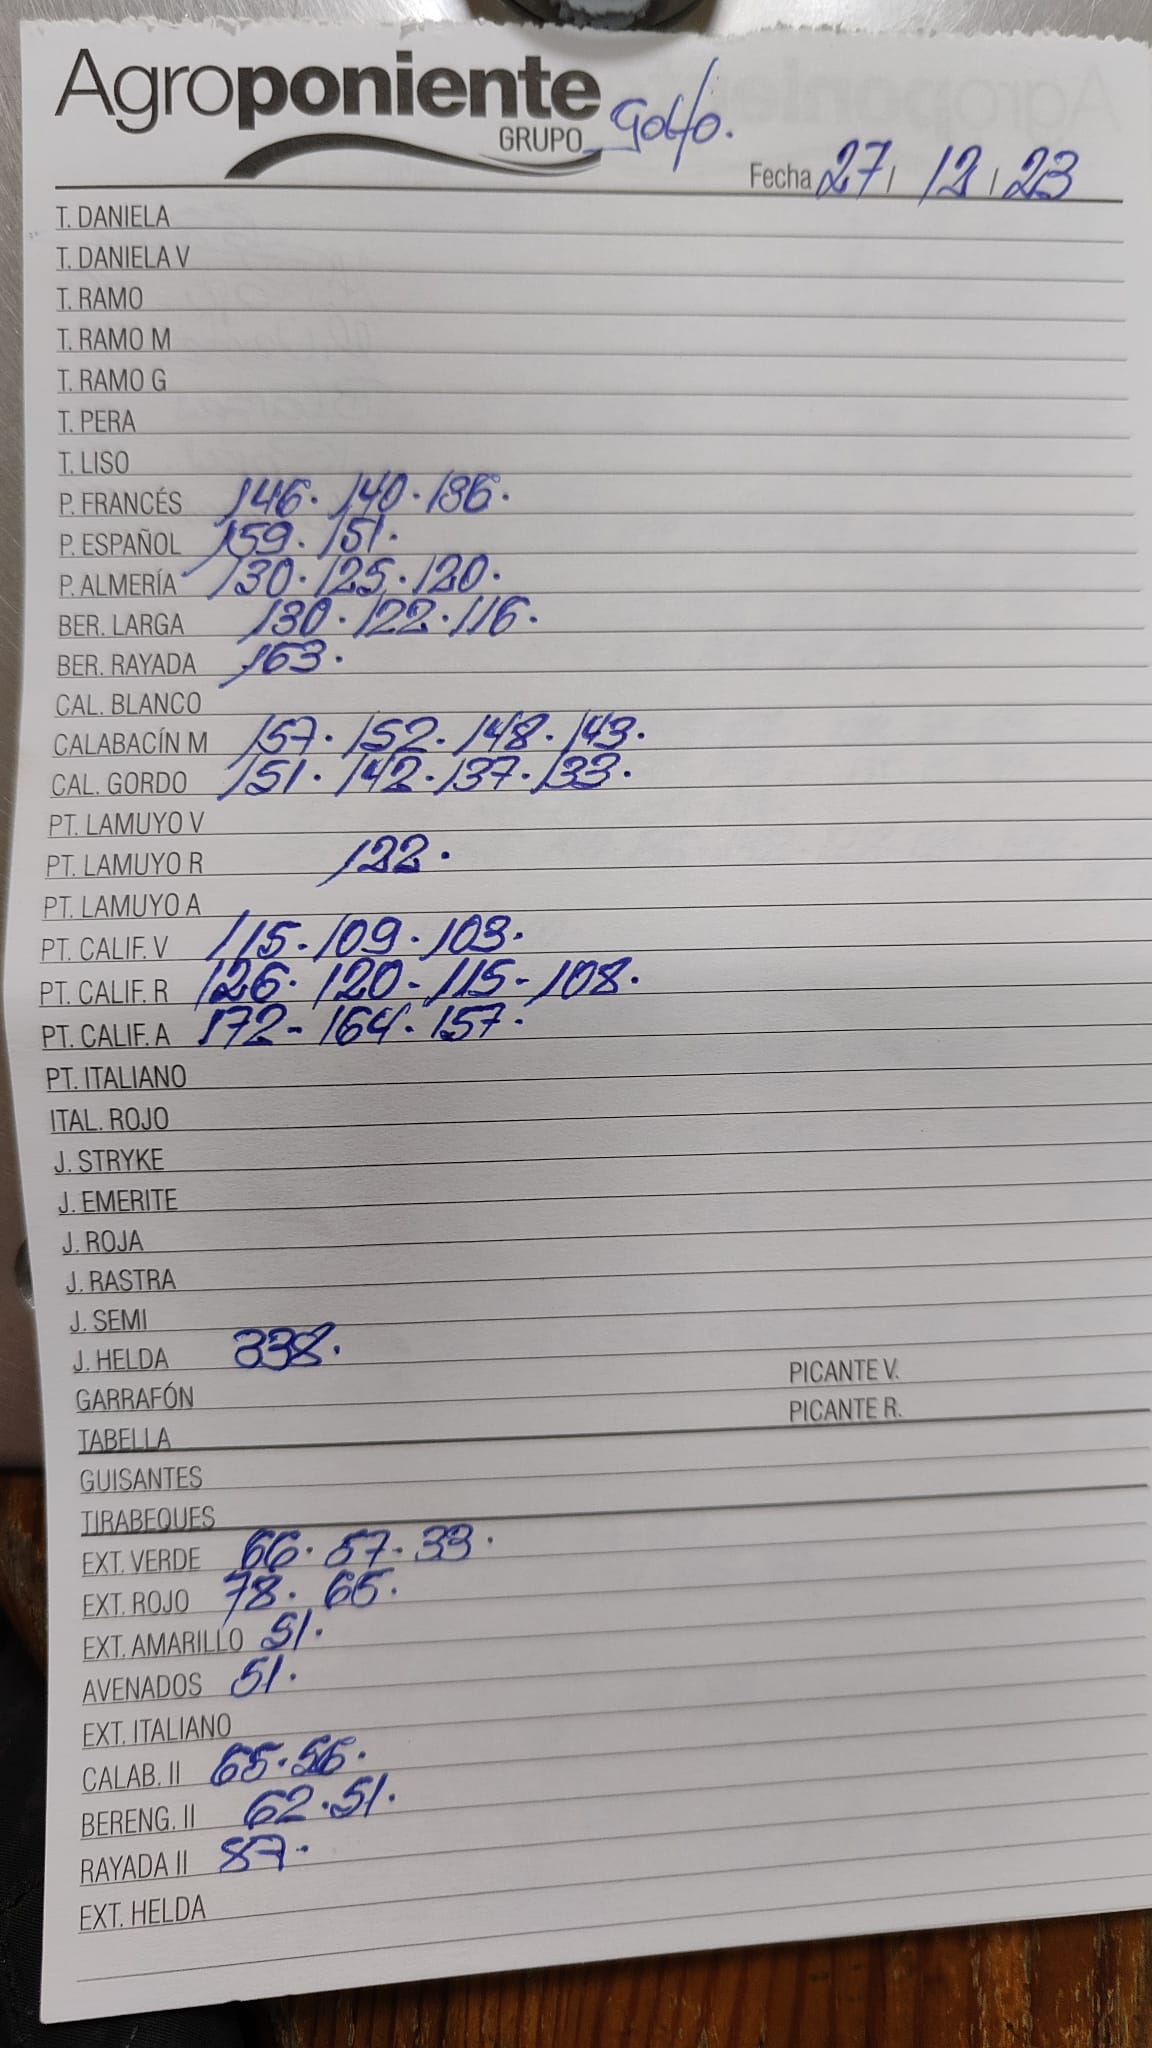 Agroponiente
GRUPO Golfo.
Fecha 27 / 12 / 23
T. DANIELA
T. DANIELA V
T. RAMO
T. RAMO M
T. RAMO G
T. PERA
T. LISO
P. FRANCÉS 146. 140. 136.
P. ESPAÑOL 159. 151.
P. ALMERÍA 130. 125. 120.
BER. LARGA 130. 122. 116.
BER. RAYADA 163.
CAL. BLANCO
CALABACÍN M 157. 152. 148. 143.
CAL. GORDO 151. 142. 137. 133.
PT. LAMUYO V
PT. LAMUYO R 122.
PT. LAMUYO A
PT. CALIF. V 115. 109. 103.
PT. CALIF. R 126. 120- 115- 108.
PT. CALIF. A 172- 164. 157.
PT. ITALIANO
ITAL. ROJO
J. STRYKE
J. EMERITE
J. ROJA
J. RASTRA
J. SEMI
J. HELDA 338.
GARRAFÓN PICANTE V.
TABELLA PICANTE R.
GUISANTES
TIRABEQUES
EXT. VERDE 66. 57. 33.
EXT. ROJO 78. 65.
EXT. AMARILLO 51.
AVENADOS 51.
EXT. ITALIANO
CALAB. II 65. 56.
BERENG. II 62. 51.
RAYADA II 87.
EXT. HELDA